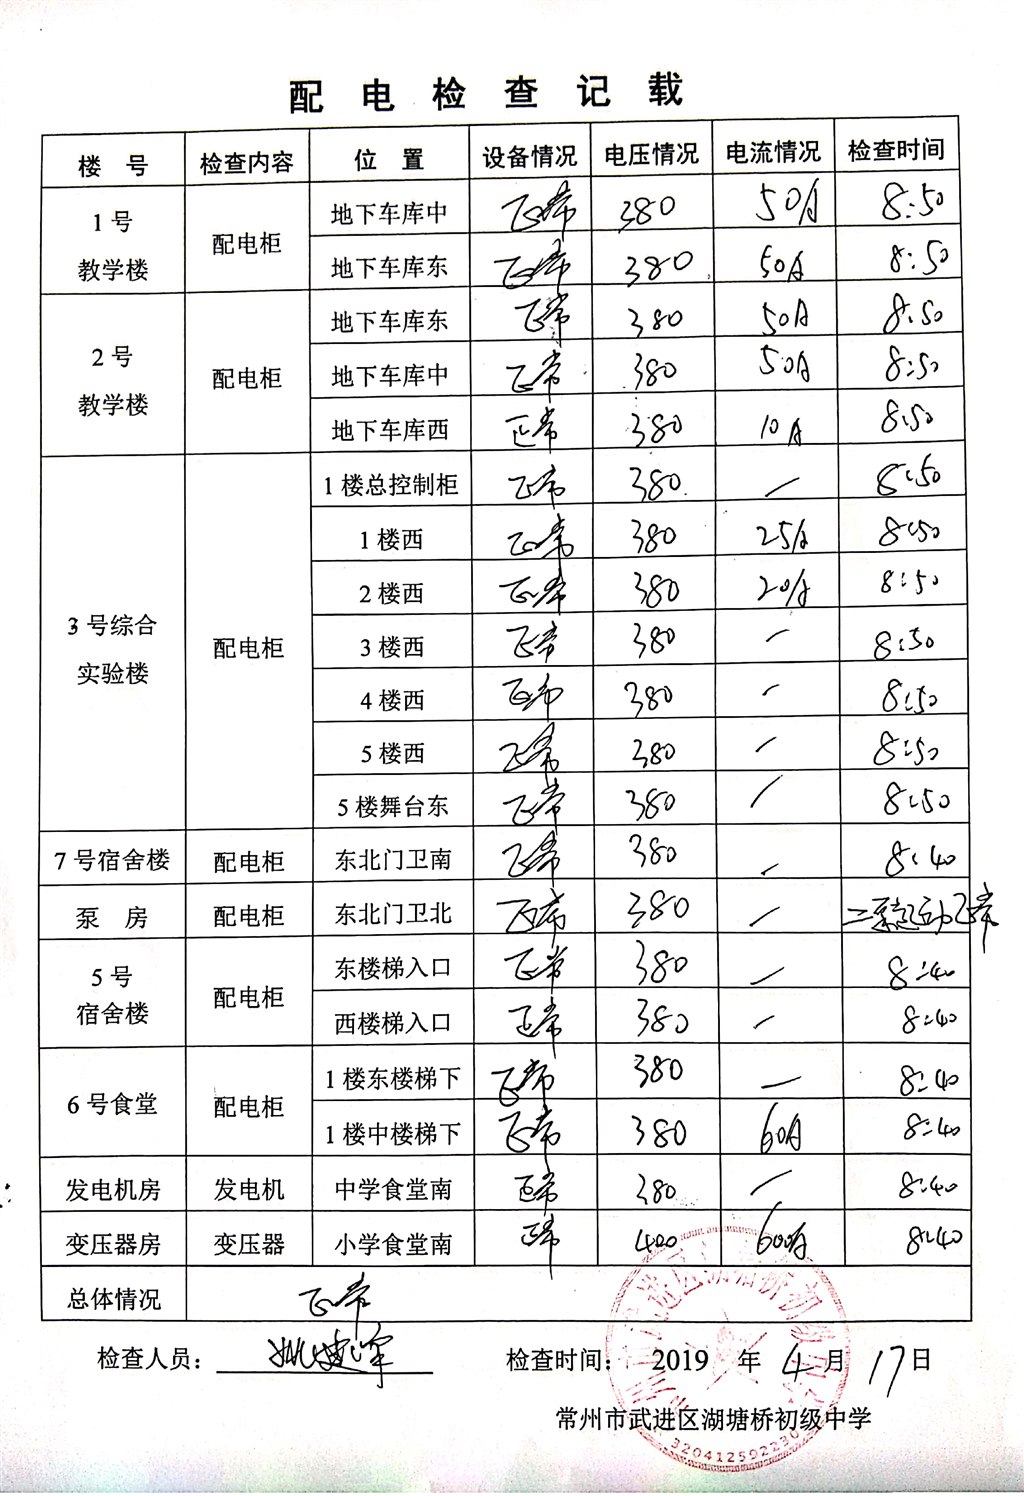 配电检查记载
楼 号 检查内容 位 置 设备情况 电压情况 电流情况 检查时间
1号教学楼 配电柜 地下车库中 正常 380 50A 8:50
地下车库东 正常 380 50A 8:50
2号教学楼 配电柜 地下车库东 正常 380 50A 8:50
地下车库中 正常 380 50A 8:50
地下车库西 正常 380 10A 8:50
3号综合实验楼 配电柜 1楼总控制柜 正常 380 / 8:50
1楼西 正常 380 25A 8:50
2楼西 正常 380 20A 8:50
3楼西 正常 380 / 8:50
4楼西 正常 380 / 8:50
5楼西 正常 380 / 8:50
5楼舞台东 正常 380 / 8:50
7号宿舍楼 配电柜 东北门卫南 正常 380 / 8:40
泵 房 配电柜 东北门卫北 正常 380 / 二泵起动正常
5号宿舍楼 配电柜 东楼梯入口 正常 380 / 8:40
西楼梯入口 正常 380 / 8:40
6号食堂 配电柜 1楼东楼梯下 正常 380 / 8:40
1楼中楼梯下 正常 380 60A 8:40
发电机房 发电机 中学食堂南 正常 380 / 8:40
变压器房 变压器 小学食堂南 正常 400 600A 8:40
总体情况 正常
检查人员: 姚建峰 检查时间: 2019 年 4 月 17 日
常州市武进区湖塘桥初级中学
320412592230